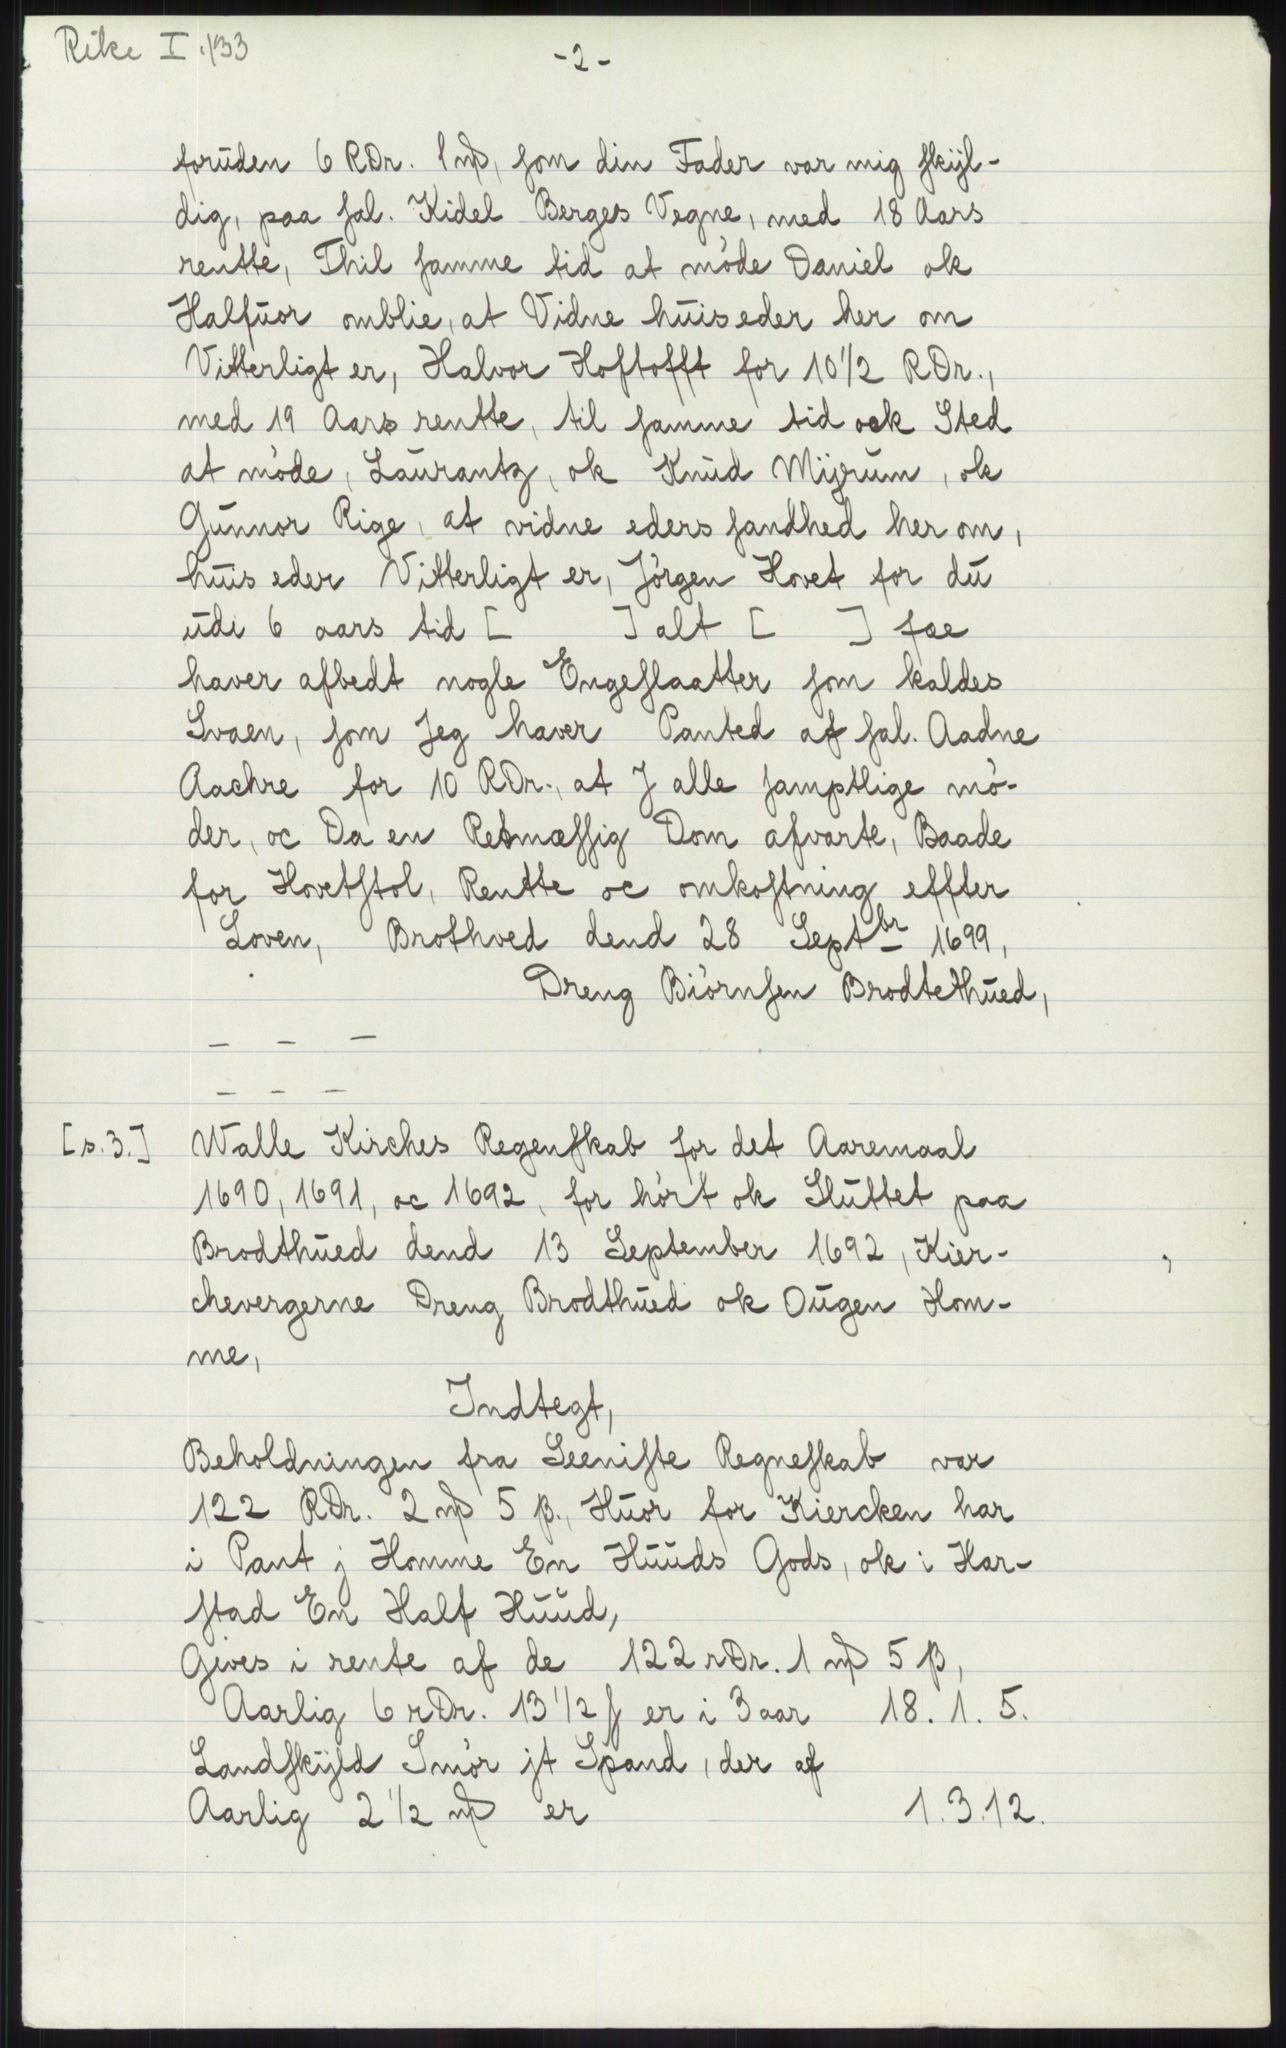 Rike I. 133
-2-
foruden 6 RDr. 1 mƿ, som din Fader var mig skÿl-
dig, paa sal. Kidel Berges Vegne, med 18 Aars
rentte, Thil samme tid at møde Daniel ok
Halfuor omblie, at Vidne huis eder her om
Vitterligt er, Halvor Hoftofft for 10 1/2 RDr.,
med 19 Aars rentte, til samme tid ock Sted
at møde, Laurantz, ok Knud Mÿrum, ok
Gunnor Rige, at vidne eders sandhed her om,
huis eder Vitterligt er, Jørgen Hovet for du
udi 6 aars tid [ ] alt [ ] fae
haver afbedt nogle Engeslaatter som kaldes
Svaen, som Jeg haver Panted af sal. Aadne
Aachre for 10 RDr., at J alle samptlige mø-
der, oc Da en Retmæssig Dom afvarte, Baade
for Hovetstol, Rentte oc omkostning effter
Loven, Brothved dend 28 Septbr 1699,
Dreng Biørnsen Brodtethued,
— — —
— — —
[s. 3.] Walle Kirches Regenskab for det Aaremaal
1690, 1691, oc 1692, for hørt ok Sluttet paa
Brodthued dend 13 September 1692, Kier-
chevergerne Dreng Brodthued ok Ougen Hom-
me,
Indtegt,
Beholdningen fra Seeniste Regneskab var
122 RDr. 2 mƿ 5 β., Huor for Kiercken har
i Pant j Homme En Huuds Gods, ok i Har-
stad En Half Huud,
Gives i rente af de 122 rDr. 1 mƿ 5 β,
Aarlig 6 rDr. 13 1/2 s er i 3 aar 18. 1. 5.
Landskÿld Smør jt Spand, der af
Aarlig 2 1/2 mƿ er 1. 3. 12.